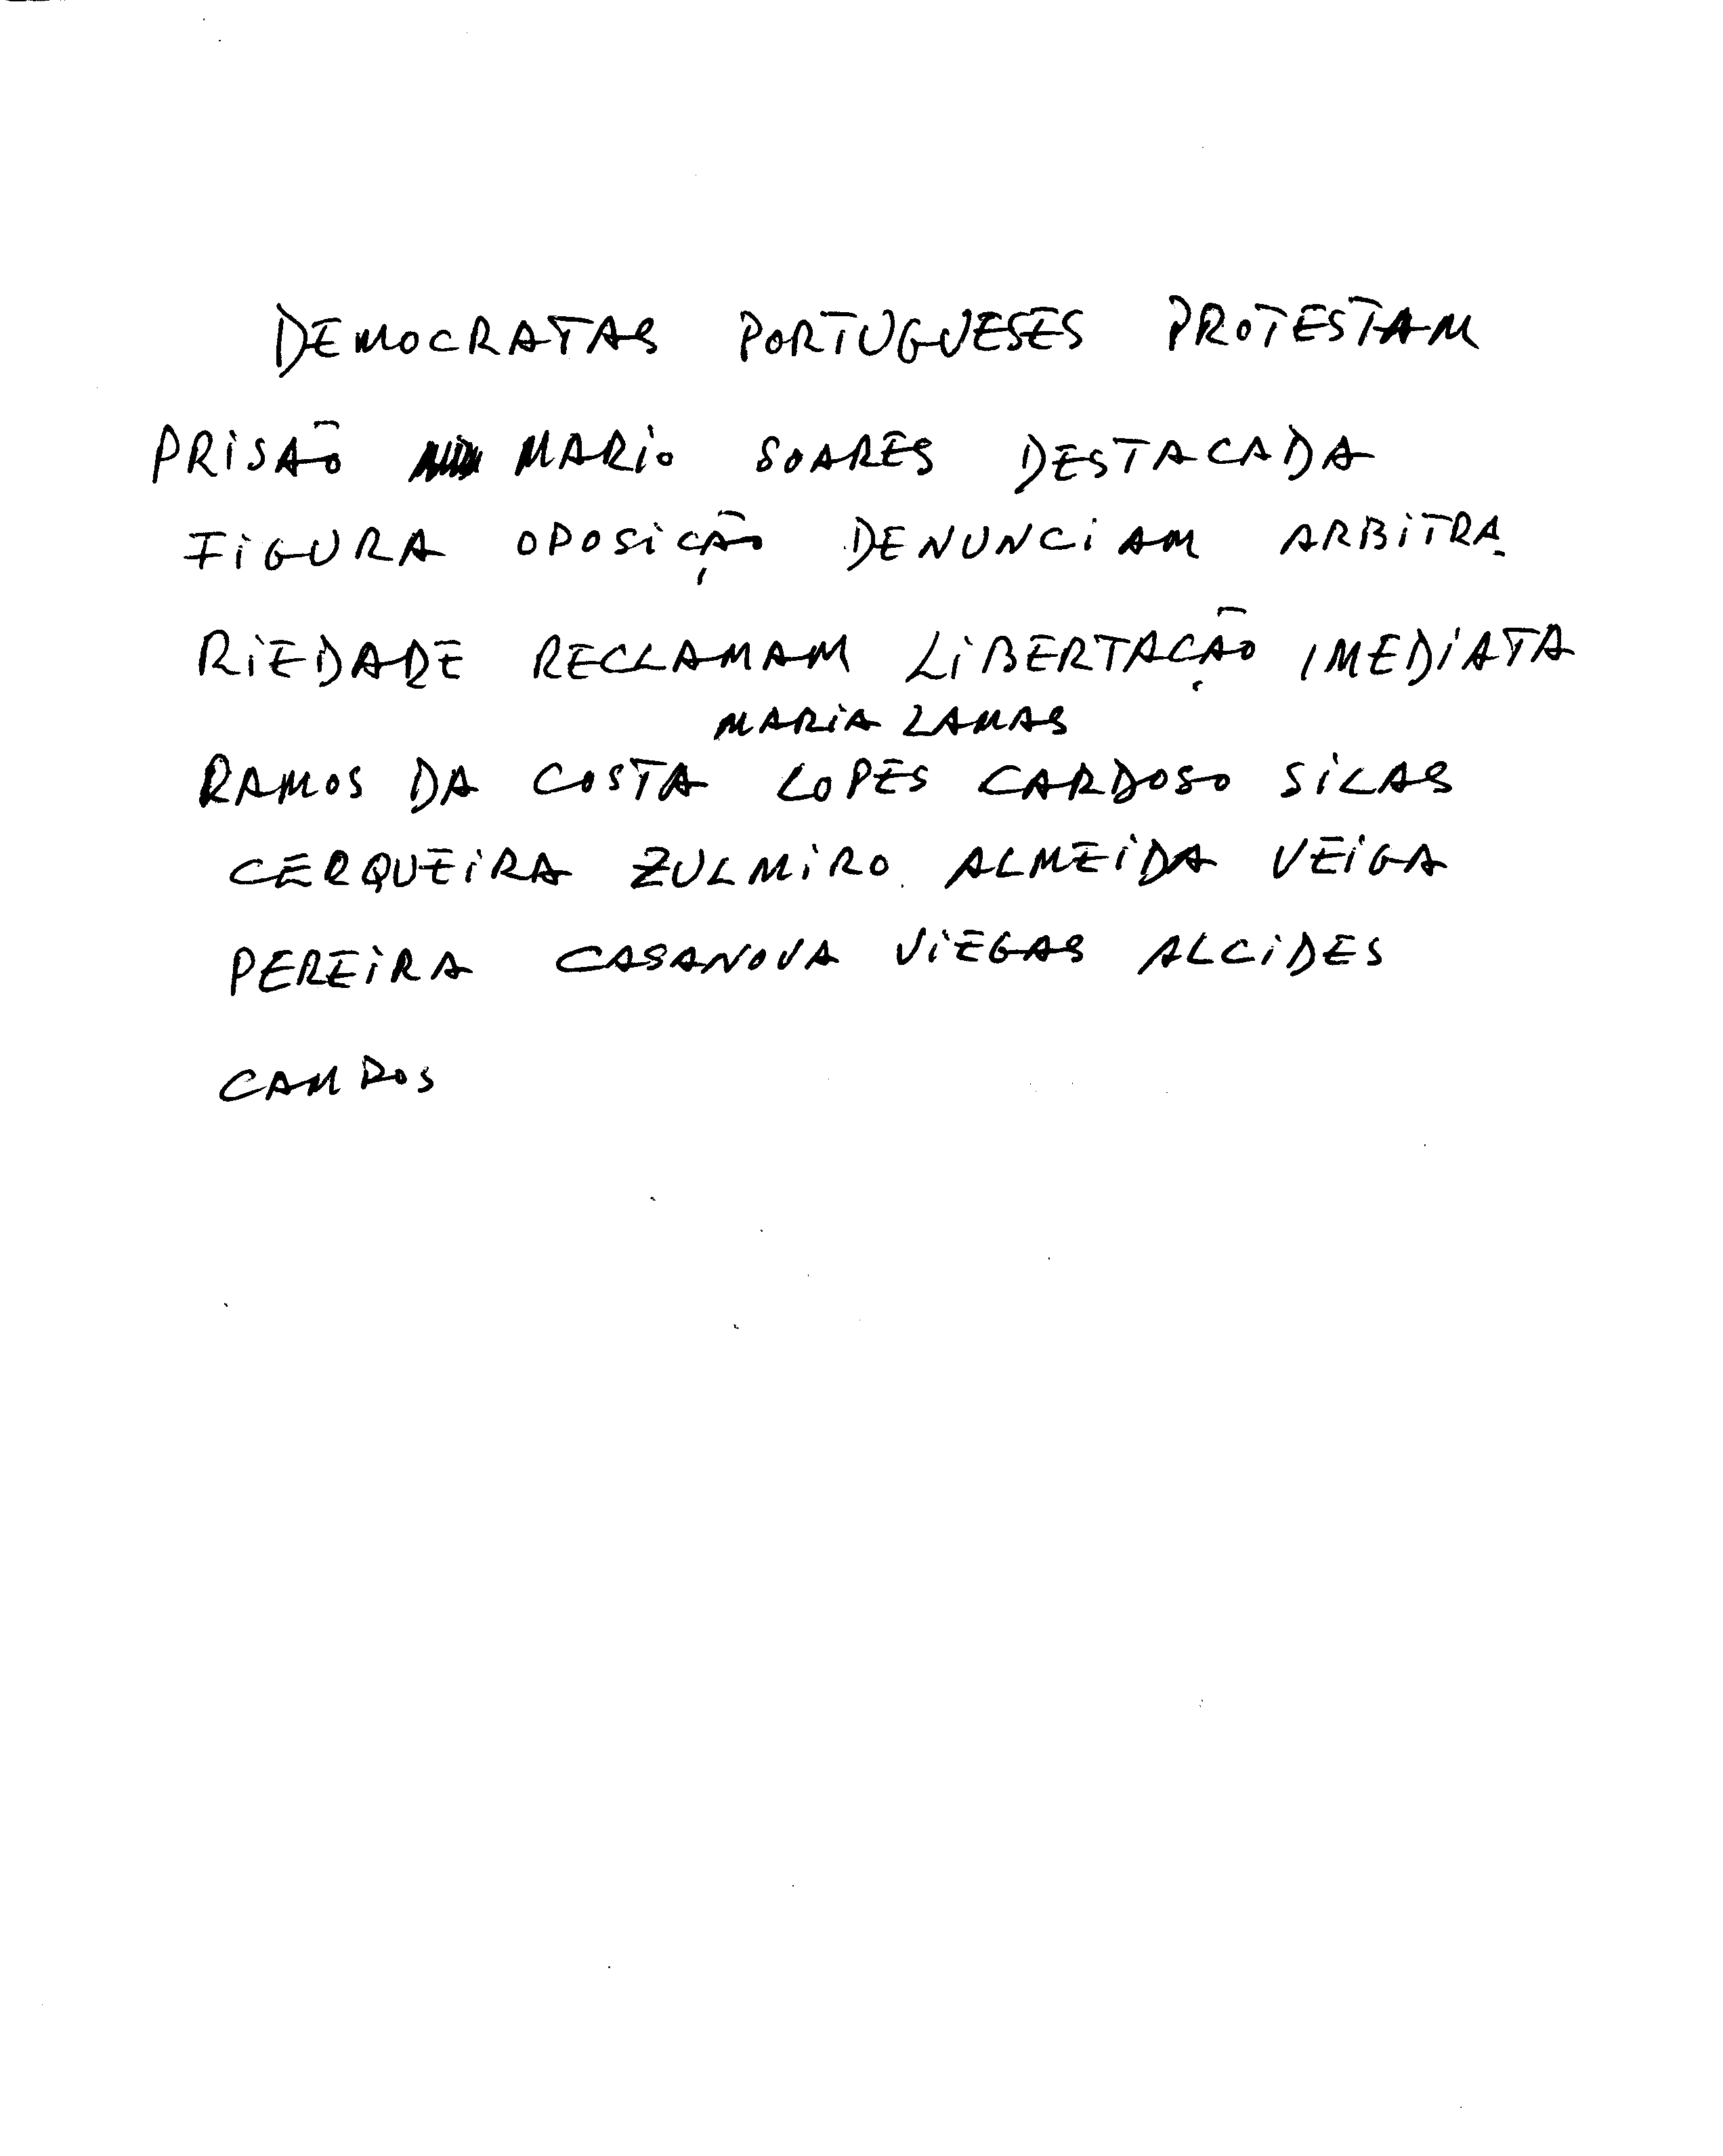 DEMOCRATAS PORTUGUESES PROTESTAM
PRISÃO MARIO SOARES DESTACADA
FIGURA OPOSIÇÃO DENUNCIAM ARBITRA
RIEDADE RECLAMAM LIBERTAÇÃO IMEDIATA
MARIA LAMAS
RAMOS DA COSTA LOPES CARDOSO SILAS
CERQUEIRA ZULMIRO ALMEIDA VEIGA
PEREIRA CASANOVA VIEGAS ALCIDES
CAMPOS